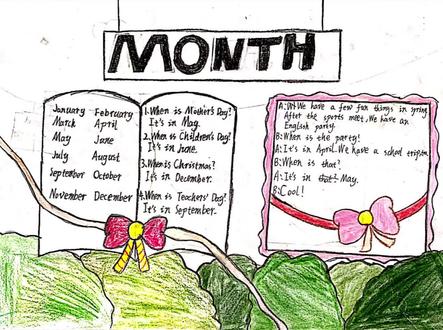 MONTH
January February
March April
May June
July August
September October
November December
1.When is Mother's Day?
It's in May.
2.When is Children's Day?
It's in June.
3.When is Christmas?
It's in December.
4.When is Teachers' Day?
It's in September.
A: We have a few fun things in spring.
After the sports meet, We have an
English party.
B: When is the party?
A: It's in April. We have a school trip
B: When is that?
A: It's in May.
B: Cool!